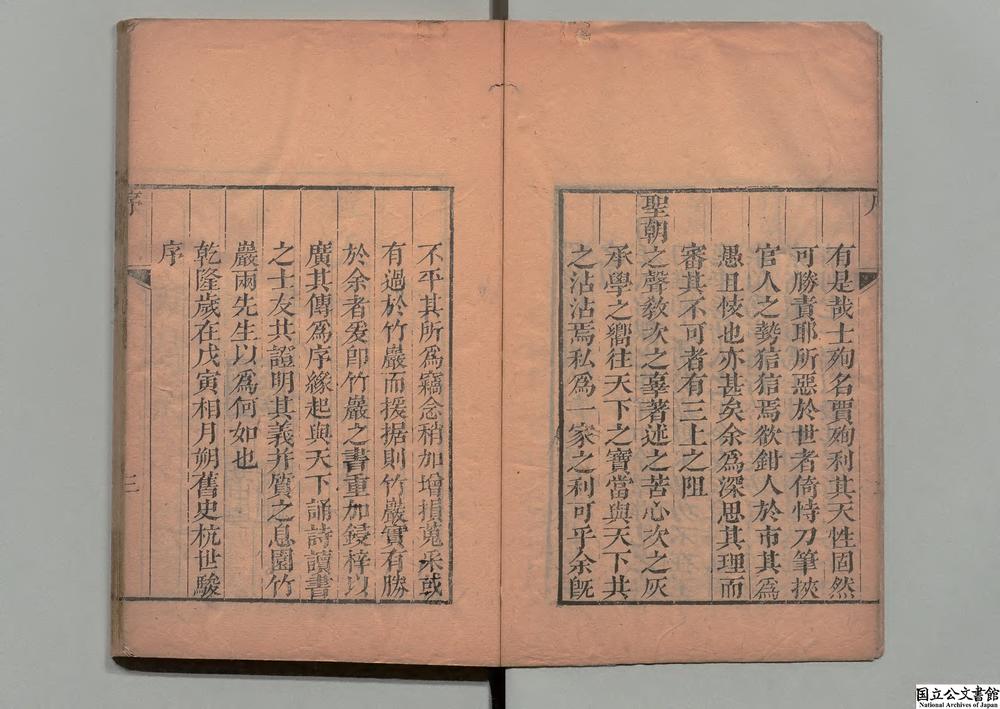 有是哉士殉名賈殉利其天性固然
可勝責耶所惡於世者倚恃刀筆挾
官人之勢狺狺焉欲鉗人於市其爲
愚且忮也亦甚矣余爲深思其理而
審其不可者有三上之阻
聖朝之聲敎次之辜著述之苦心次之灰
承學之嚮往天下之寶當與天下共
之沾沾焉私爲一家之利可乎余旣
不平其所爲竊念稍加增損蒐采或
有過於竹巖而援据則竹巖實有勝
於余者爰卽竹巖之書重加鋟梓以
廣其傳爲序緣起與天下誦詩讀書
之士友共證明其義并質之息園竹
巖兩先生以爲何如也
乾隆歲在戊寅相月朔舊史杭世駿
序
序
三
国立公文書館
National Archives of Japan